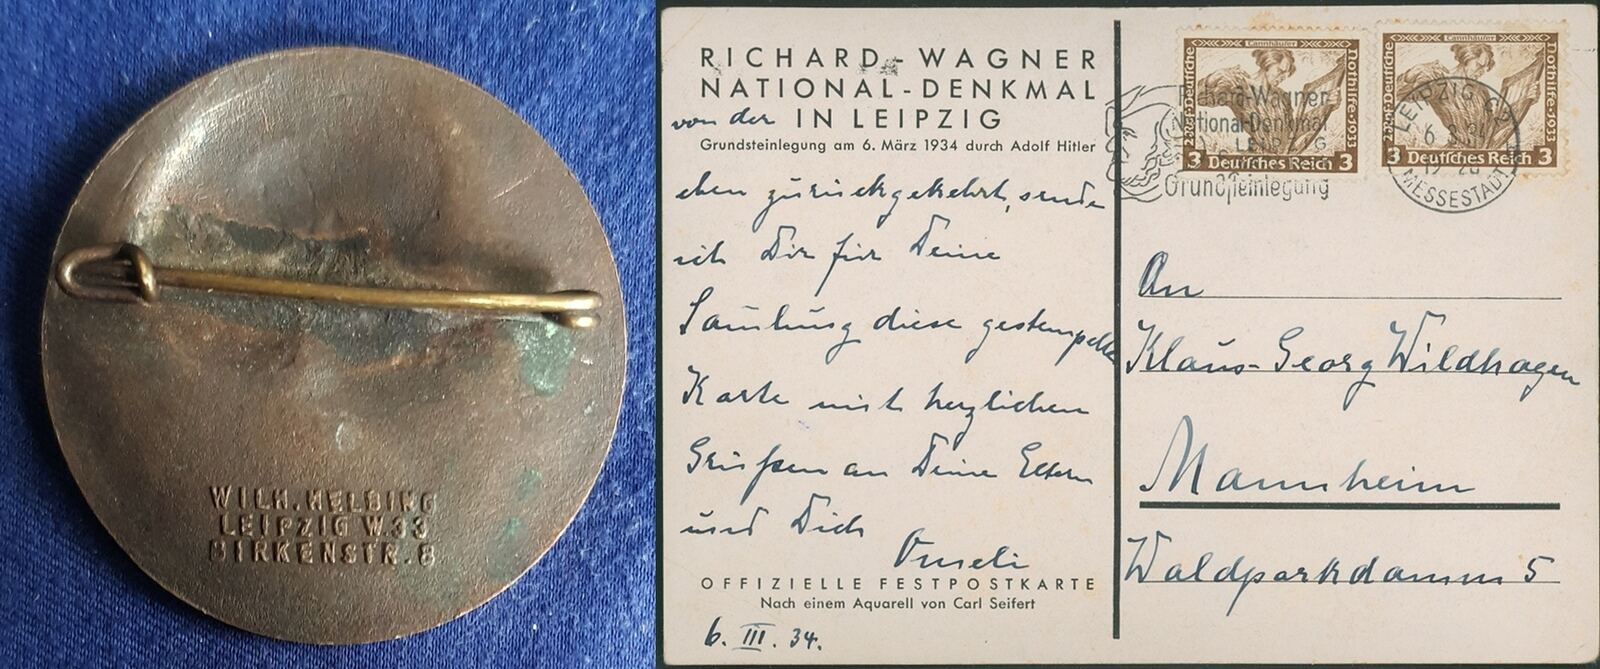 WILH. HELBING
LEIPZIG W.33
BIRKENSTR. 8
RICHARD-WAGNER
NATIONAL-DENKMAL
IN LEIPZIG
Grundsteinlegung am 6. März 1934 durch Adolf Hitler
von der
eben zurückgekehrt, sende
ich Dir für Deine
Samlung diese gestempelte
Karte mit herzlichen
Grüssen an Deine Eltern
und Dich
OFFIZIELLE FESTPOSTKARTE
Nach einem Aquarell von Carl Seifert
6. III. 34.
Tannhäuser
Deutsche Nothilfe·1933
2+2
3 Deutsches Reich 3
Tannhäuser
Deutsche Nothilfe·1933
2+2
3 Deutsches Reich 3
Richard-Wagner-
National-Denkmal
LEIPZIG
Grundsteinlegung
LEIPZIG C2
6.3.34
MESSESTADT
An
Klaus-Georg Wildhagen
Mannheim
Waldparkdamm 5